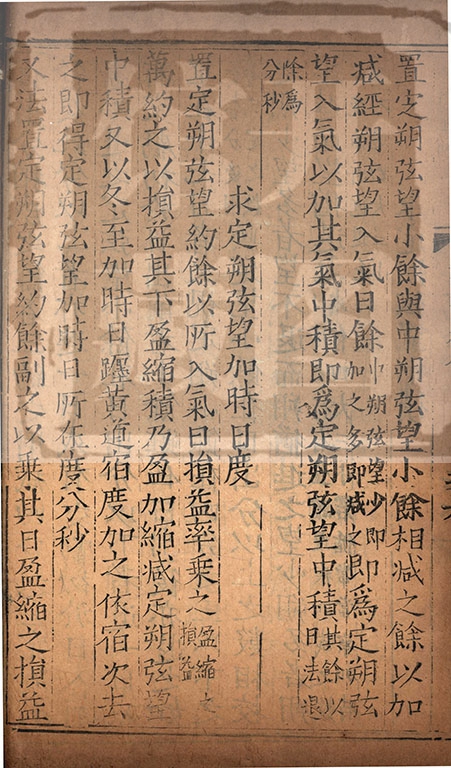 置定朔弦望小餘與中朔弦望小餘相减之餘以加
减經朔弦望入氣日餘中朔弦望少即加之多即减之即爲定朔弦
望入氣以加其氣中積即爲定朔弦望中積其餘以日法退
除爲分秒
求定朔弦望加時日度
置定朔弦望約餘以所入氣日損益率乘之盈縮之損益
萬約之以損益其下盈縮積乃盈加縮减定朔弦望
中積又以冬至加時日躔黃道宿度加之依宿次去
之即得定朔弦望加時日所在度分秒
又法置定朔弦望約餘副之以乘其日盈縮之損益